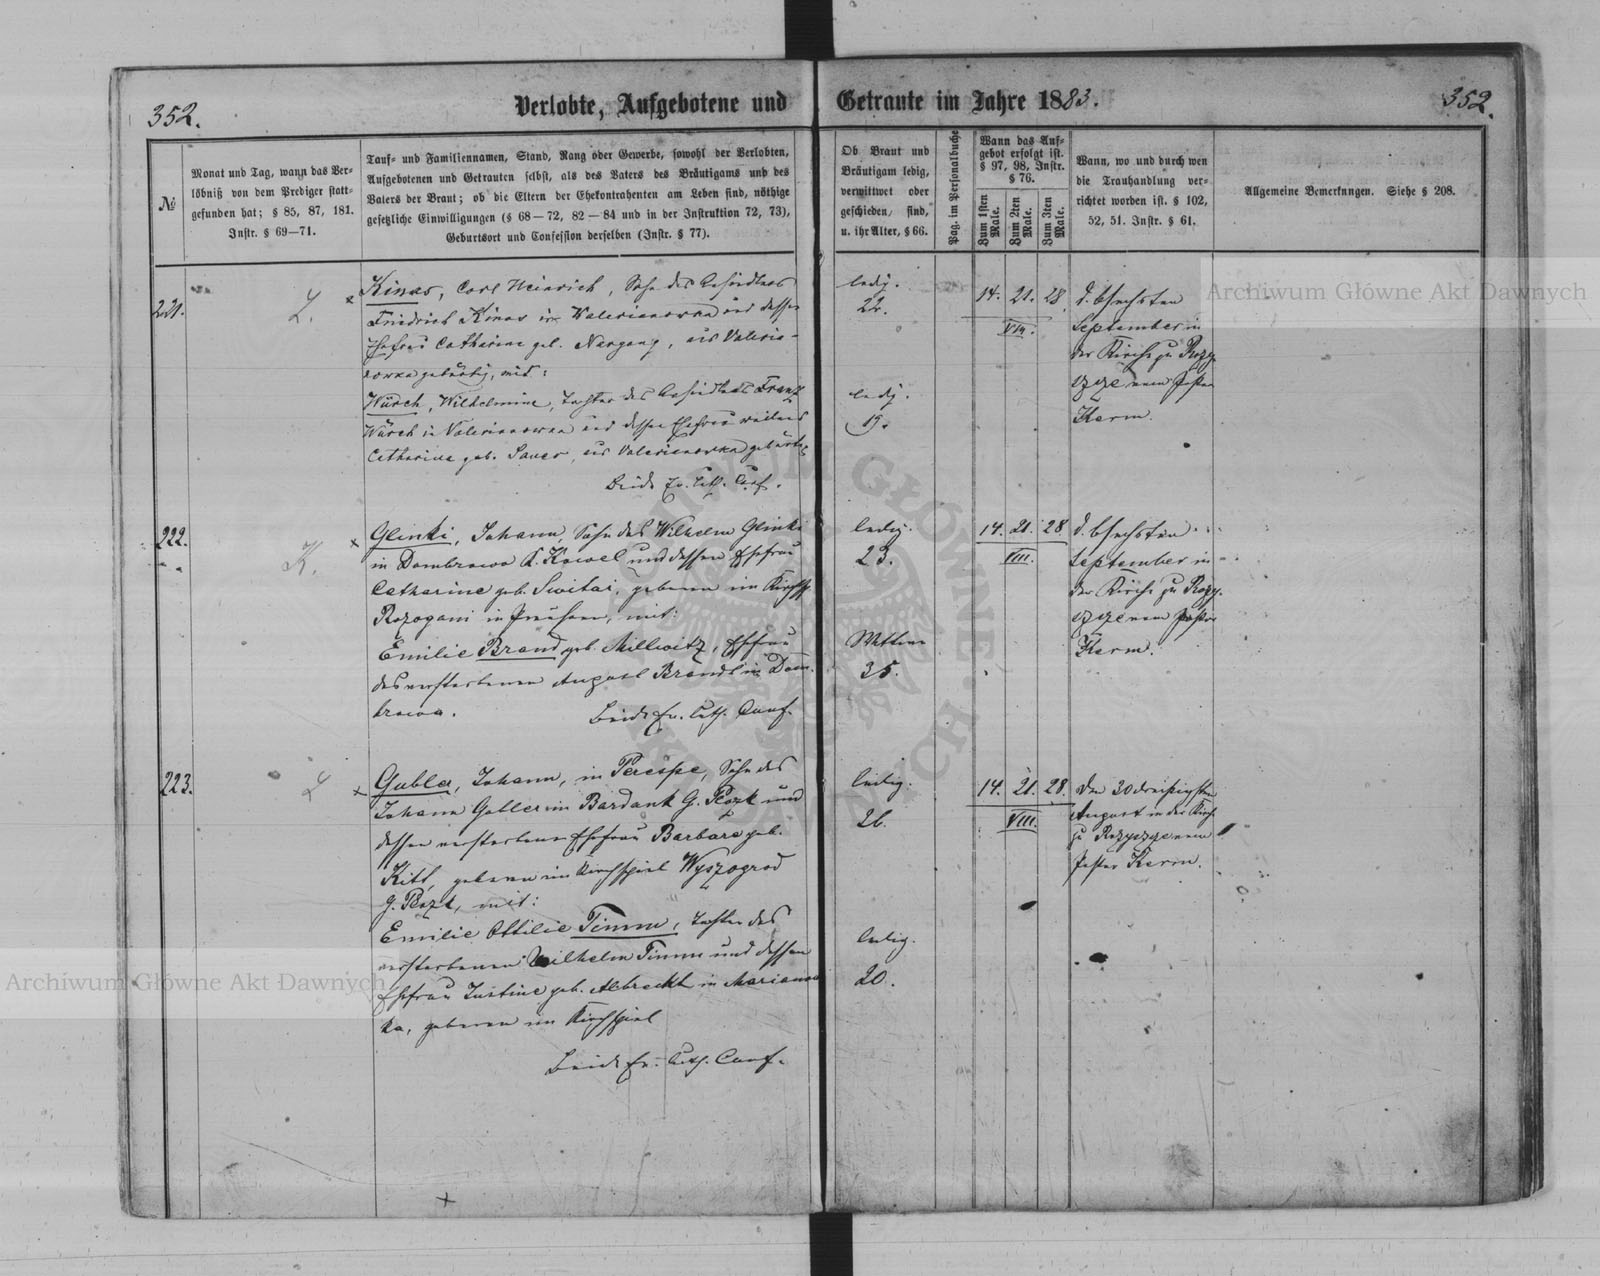 352.
Verlobte, Aufgebotene und Getraute im Jahre 1883.
352.
№
Monat und Tag, wann das Ver-
löbniß von dem Prediger statt-
gefunden hat; § 85, 87, 181.
Instr. § 69—71.
Tauf- und Familiennamen, Stand, Rang oder Gewerbe, sowohl der Verlobten,
Aufgebotenen und Getrauten selbst, als des Vaters des Bräutigams und des
Vaters der Braut; ob die Eltern der Ehekontrahenten am Leben sind, nöthige
gesetzliche Einwilligungen (§ 68—72, 82—84 und in der Instruktion 72, 73),
Geburtsort und Confession derselben (Instr. § 77).
Ob Braut und
Bräutigam ledig,
verwittwet oder
geschieden sind,
u. ihr Alter, § 66.
Pag. im Personalbuche
Wann das Auf-
gebot erfolgt ist.
§ 97, 98, Instr.
§ 76.
Zum 1sten
Male.
Zum 2ten
Male.
Zum 3ten
Male.
Wann, wo und durch wen
die Trauhandlung ver-
richtet worden ist. § 102,
52, 51. Instr. § 61.
Allgemeine Bemerkungen. Siehe § 208.
221.
L.
Kinas, Carl Heinrich, Sohn des
Friedrich Kinas in Walerianowka und dessen
Ehefrau Catharine geb. aus Valeria-
nowka gebürtig, mit:
Würch, Wilhelmine, Tochter des Franz
Würch in Valerianowka und dessen Ehefrau weiland
Catharina geb. Sauer, aus Valerianowka gebürtig
Beide Ev. Luth. Conf.
ledig.
22.
ledig.
19.
14. 21. 28
VIII.
September in
der Kirche zu Rozy-
szcze vom Pastor
Kerm.
222.
K.
Glinki, Johann, Sohn des Wilhelm Glinki
in Dombrowa K. Kowel und dessen Ehefrau
Catharine geb. Switai, geboren im Kirchsp.
Rozogani in Preußen, mit:
Emilie Brand geb. Millwitz, Ehefrau
des verstorbenen August Brandt in Dom-
browa.
Beide Ev. Luth. Conf.
ledig.
23.
Wittwe
35.
14. 21. 28
VIII.
September in
der Kirche zu Rozy-
szcze vom Pastor
Kerm.
223.
L
Gubler, Johann, in Perespe, Sohn des
Johann Gabler im Bardank G. Plozk und
dessen verstorbene Ehefrau Barbara geb.
Kitt, geboren im Kirchspiel Wyszogrod
G. Plozk, mit:
Emilie Ottilie Timm, Tochter des
verstorbenen Wilhelm Timm und dessen
Ehefrau Justine geb. Albrecht in Marianow-
ka, geboren im Kirchspiel
Beide Ev. Luth. Conf.
ledig.
26.
ledig.
20.
14. 21. 28.
VIII.
Den 30 dreißigsten
August in der Kirche
zu Rozyszcze vom
Pastor Kerm.
Archiwum Główne Akt Dawnych
Archiwum Główne Akt Dawnych